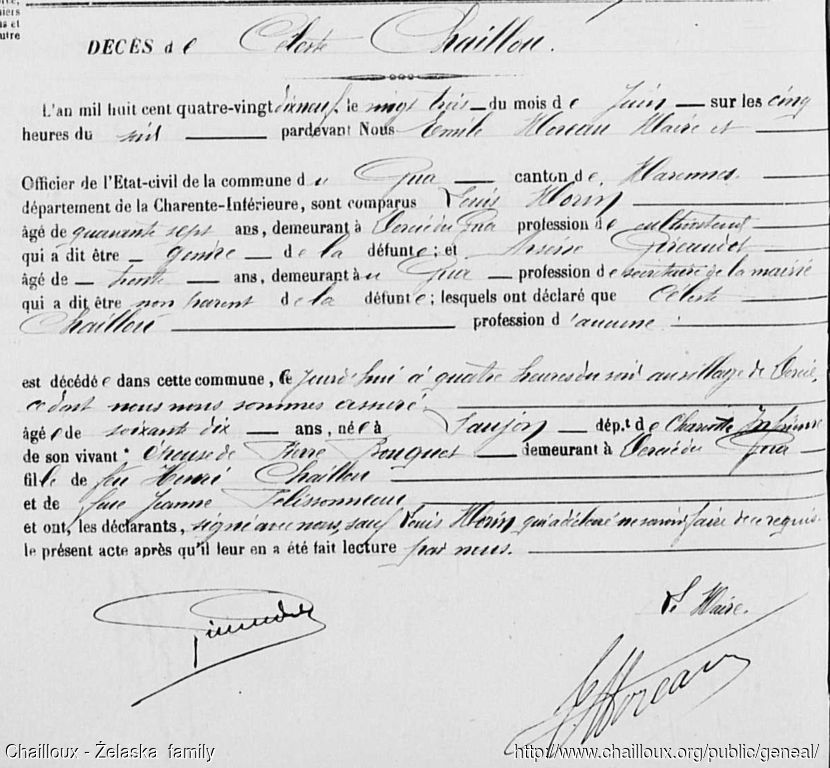 niers
s et
utre
DÉCÈS de Céleste Chaillou.
L'an mil huit cent quatre-vingt dixneuf le vingt trois du mois de Juin sur les cinq
heures du soir pardevant Nous Emile Moreau Maire et
Officier de l'Etat-civil de la commune du Gua canton de Marennes
département de la Charente-Inférieure, sont comparus Louis Morin
âgé de quarante sept ans, demeurant à du Gua profession de cultivateur
qui a dit être gendre de la défunte; et Giraudet
âgé de trente ans, demeurant au Gua profession de secrétaire de la mairie
qui a dit être non parent de la défunte; lesquels ont déclaré que Céleste
Chaillou profession d'aucune
est décédée dans cette commune, ce jourd'hui à quatre heures du soir au village de
ce dont nous nous sommes assuré.
âgée de soixante dix ans, née à Saujon dép.t de Charente Inférieure
de son vivant : Epouse de Pierre Bouquet demeurant à du Gua
fille de feu Henri Chaillou
et de feue Jeanne Pelissonneau
et ont, les déclarants, signé avec nous, sauf Louis Morin qui a déclaré ne savoir faire de ce requis.
le présent acte après qu'il leur en a été fait lecture par nous.
Le Maire.
E Moreau
Chailloux - Żelaska family
http://www.chailloux.org/public/geneal/